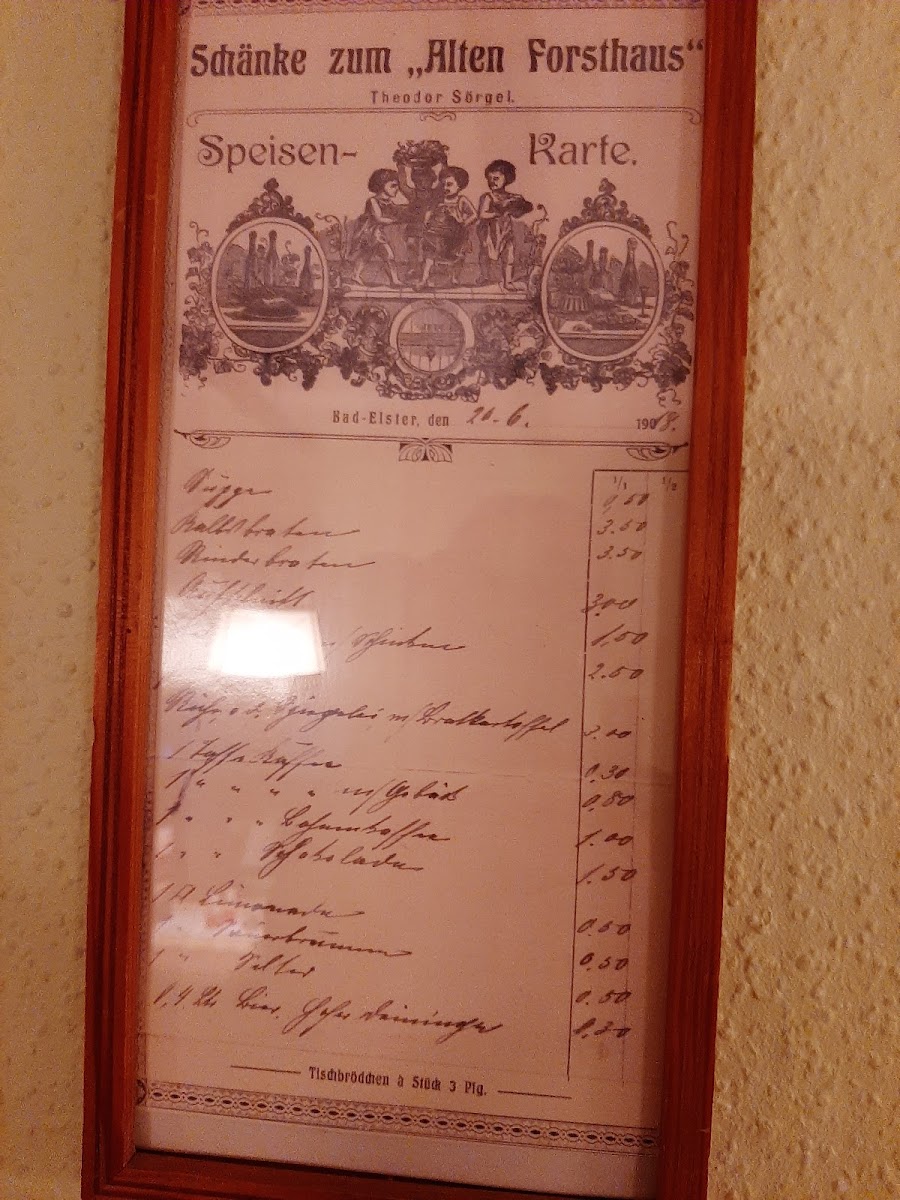 Schänke zum „Alten Forsthaus“
Theodor Sörgel.
Speisen- Karte.
Bad-Elster, den 20.6. 1918.
1/1 1/2
Suppe 0,50
Kalbsbraten 3.50
Rinderbraten 3.50
Aufschnitt 3,00
m/ Schinken 1,50
2.50
Rühr o. Spiegelei m/ Bratkartoffel 3.00
1 Tasse Kaffee 0,30
1 " " " " m/ Gebäck 0,80
1 " " " Bohnenkaffee 1.00
1 " " Schokolade 1.50
1 Fl Limonade 0.50
1 " Sauerbrunnen 0.50
1 " Selter 0.50
0,4 Ltr Bier. 0.30
Tischbrödchen à Stück 3 Pfg.